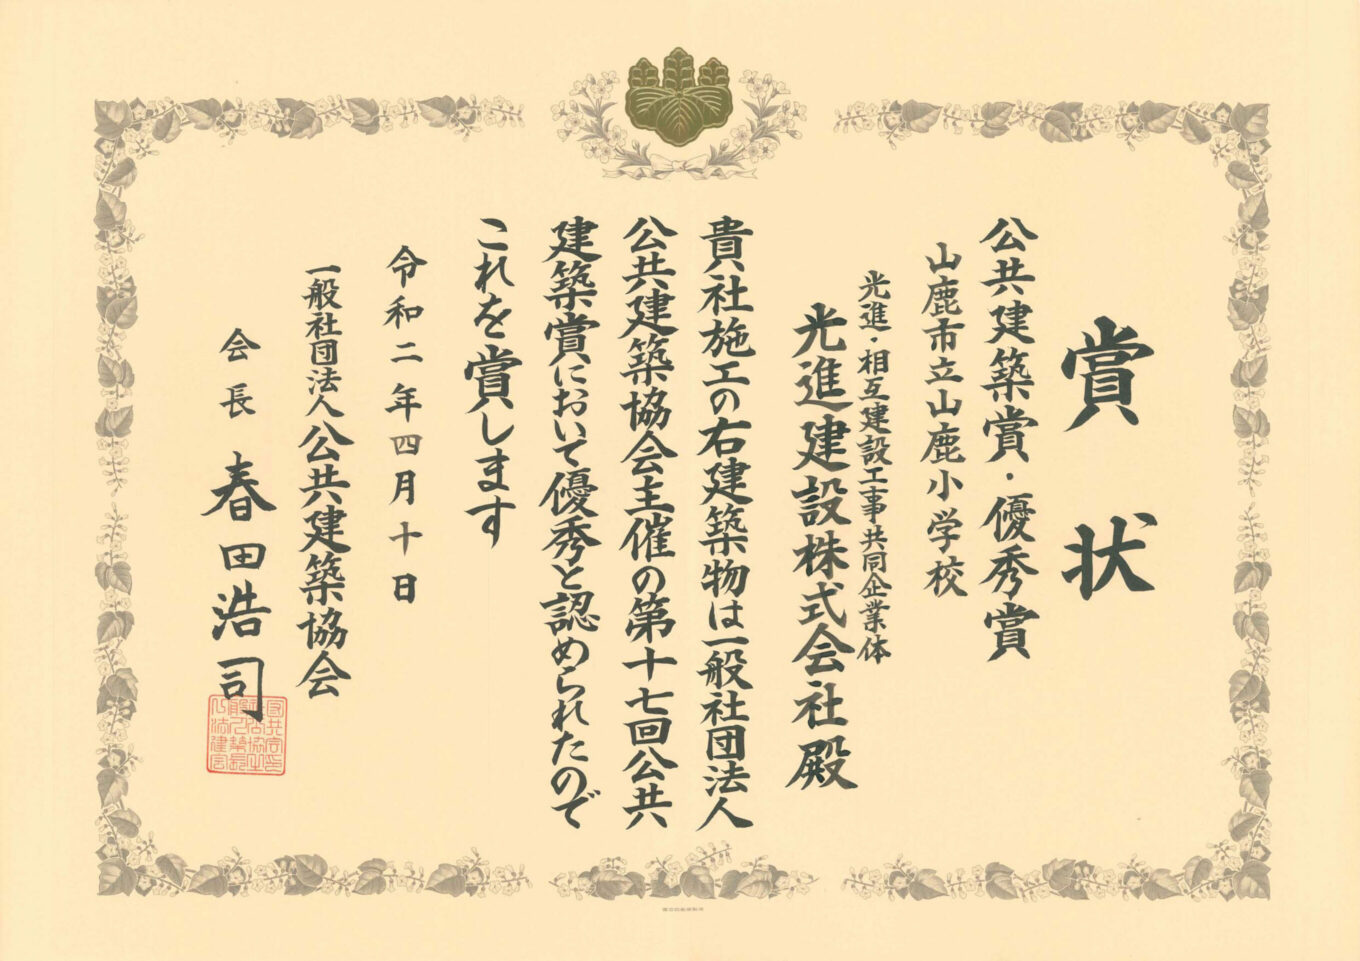 賞状
公共建築賞・優秀賞
山鹿市立山鹿小学校
光進・相互建設工事共同企業体
光進建設株式会社殿
貴社施工の右建築物は一般社団法人
公共建築協会主催の第十七回公共
建築賞において優秀と認められたので
これを賞します
令和二年四月十日
一般社団法人公共建築協会
会長 春田浩司